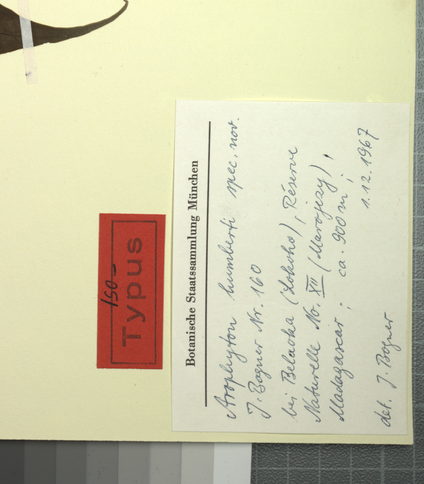 Iso-
Typus
Botanische Staatssammlung München
Arophyton humberti spec. nov.
J. Bogner Nr. 160
bei Belaoka (Lokoho), Réserve
Naturelle No. XII (Marojezy),
Madagascar; ca. 900 m;
1.12.1967
det. J. Bogner